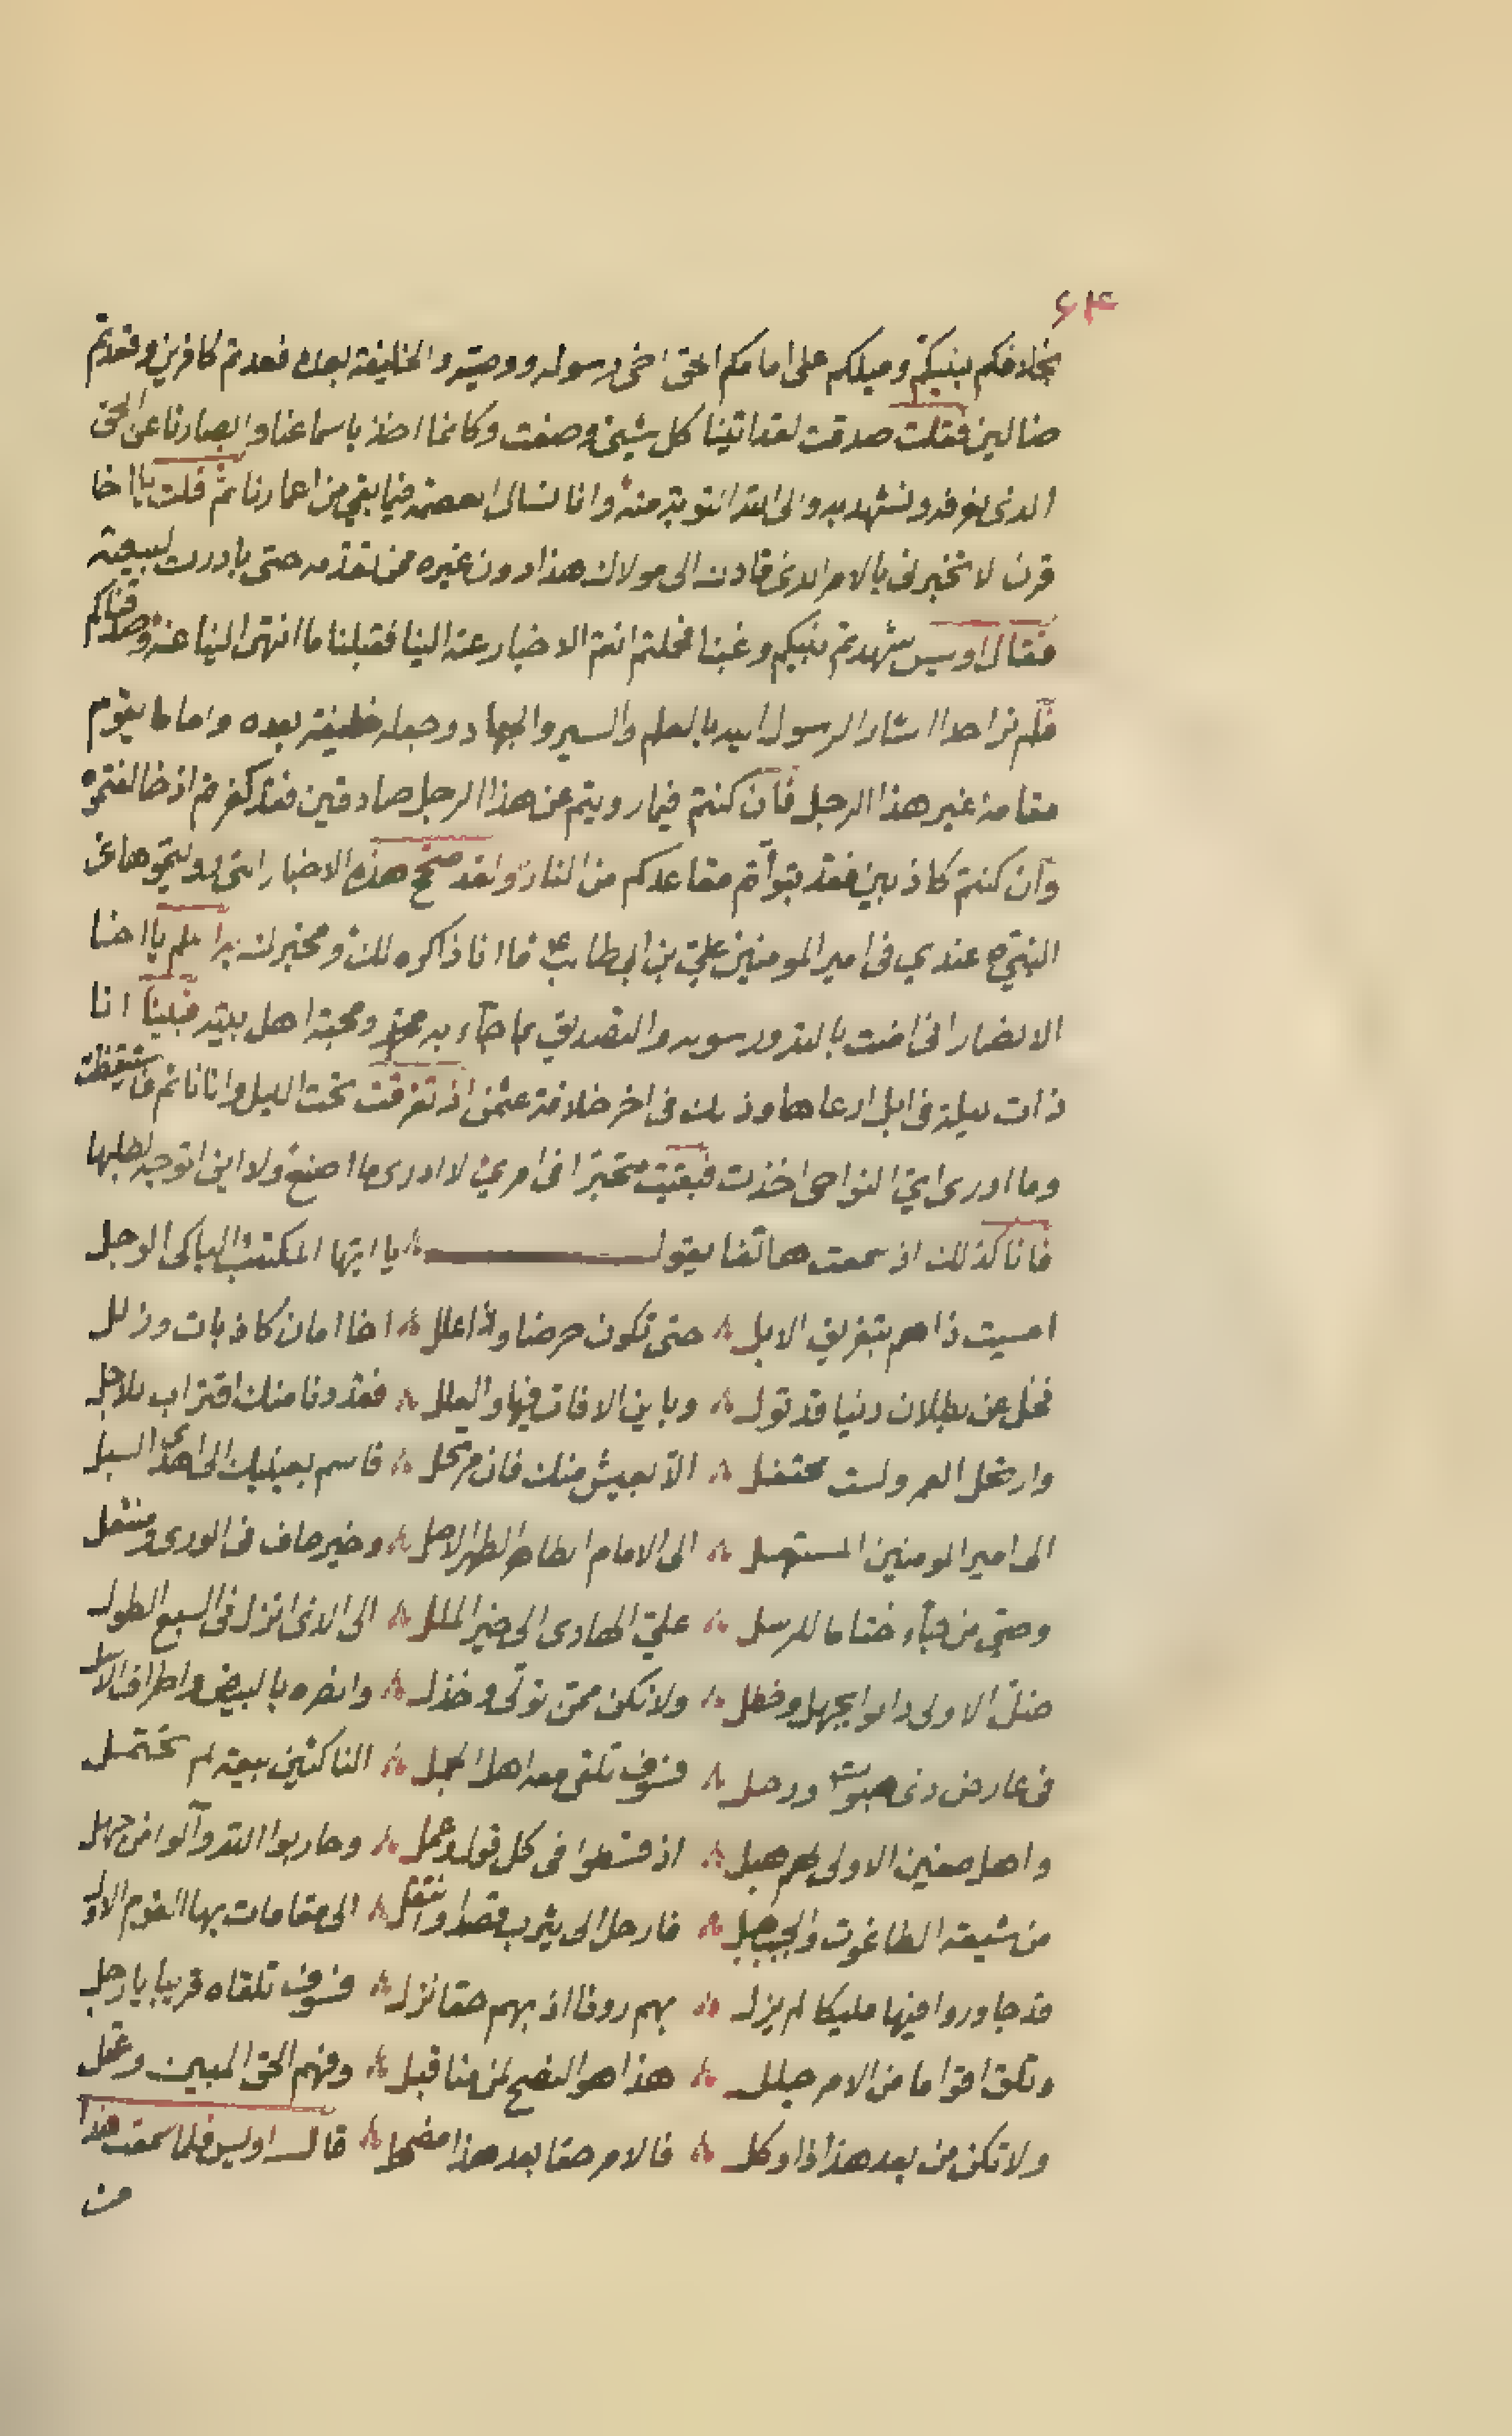 ۶۴
بخلافكم بنبيكم وميلكم على امامكم الحق اخى رسوله ووصيه والخليفة بعده فعدتم كافرين وقعدتم
ضالين فقلت صدقت لقد اتينا كل شيئ وصفت وكانما اخذ باسماعنا وابصارنا عن الحق
الذى نعرفه ونشهد به والى الله التوبة منه وانا نسال العصمة فيما بقى من اعمارنا ثم قلت يا اخا
قرن لا تخبرنى بالامر الذى قادك الى مولاك هذا دون غيره ممن تقدمه حتى بادرت لبيعته
فقال اويس شهدتم نبيكم وغبنا فحملتم انتم الاخبار عنه الينا فقبلنا ما انتهى الينا عنه وصدقناكم
فلم نر احدا اشار الرسول اليه بالعلم والسير والجهاد وجعله خليفة بعده واماما يقوم
مقامه غير هذا الرجل فان كنتم فيما رويتم عن هذا الرجل صادقين فقد كفرتم اذ خالفتموه
وان كنتم كاذبين فقد تبوأتم مقاعدكم من النار ولقد صح هذه الاخبار التى رويتموها عن
النبي عندي فى امير المومنين علي بن ابيطالب ع فاانا ذاكره لك ومخبرك به اعلم يا اخا
الانصار انى امنت بالله ورسوله والتصديق بما جآء به محمد ومحبة اهل بيته فبينا انا
ذات ليلة فى ابل ارعاها وذلك فى اخر خلافة عثمن اذ تفرقت تحت الليل وانا نائم فاستيقظت
وما ادرى اي النواحى اخذت فبقيت متحيرا فى امري لا ادرى ما اصنع ولا اين اتوجه لطلبها
فانا كذلك اذ سمعت هاتفا يقول يا ايها المكتئب الباكى الوجل
امسيت ذا هم بتفريق الابل حتى تكون حرضا وذا علل اخا امان كاذبات وزلل
فخل عن بطلان دنيا قد تول وباين الافات فيها والعلل فقد دنا منك اقتراب للاجل
وارتحل العمر ولست محتفل الا بعيش منك فان مرتحل فاسم بعينيك الى اهدى السبل
الى امير المومنين المستهل الى الامام الطاهر الطهر الاصل وخير حاف فى الورى ومنتعل
وصي من جآء ختاما للرسل علي الهادى الى خير الملل الى الذى انزل فى السبع الطول
ضل الاولى دانوا بجهل وخطل ولا تكن ممن تولى وخذل وانصره بالبيض واطراف الاسل
فى عارض ذى ودحل فسوف تلقى معه اهل الجمل الناكثين بيعة لم تحتمل
واهل صفين الاولى لهم هبل اذ قسطوا فى كل قول وعمل وحاربوا الله وآلوا من جهل
من شيعة الطاغوت والجبت هبل فارحل الى يثرب قصدا وانتقل الى مقامات بها القوم الاول
قد جاوروا فيها مليكا لم يزل بهم روفا اذ بهم حقا نزل فسوف تلقاه قريبا يا رجل
وتلق اقواما من الامر جلل هذا هو النصح لمن منا قبل وفهم الحق المبين وعقل
ولا تكن من بعد هذا ذا وكل فالامر حقا بعد هذا مضمحل قال اويس فلما سمعت هذا
من